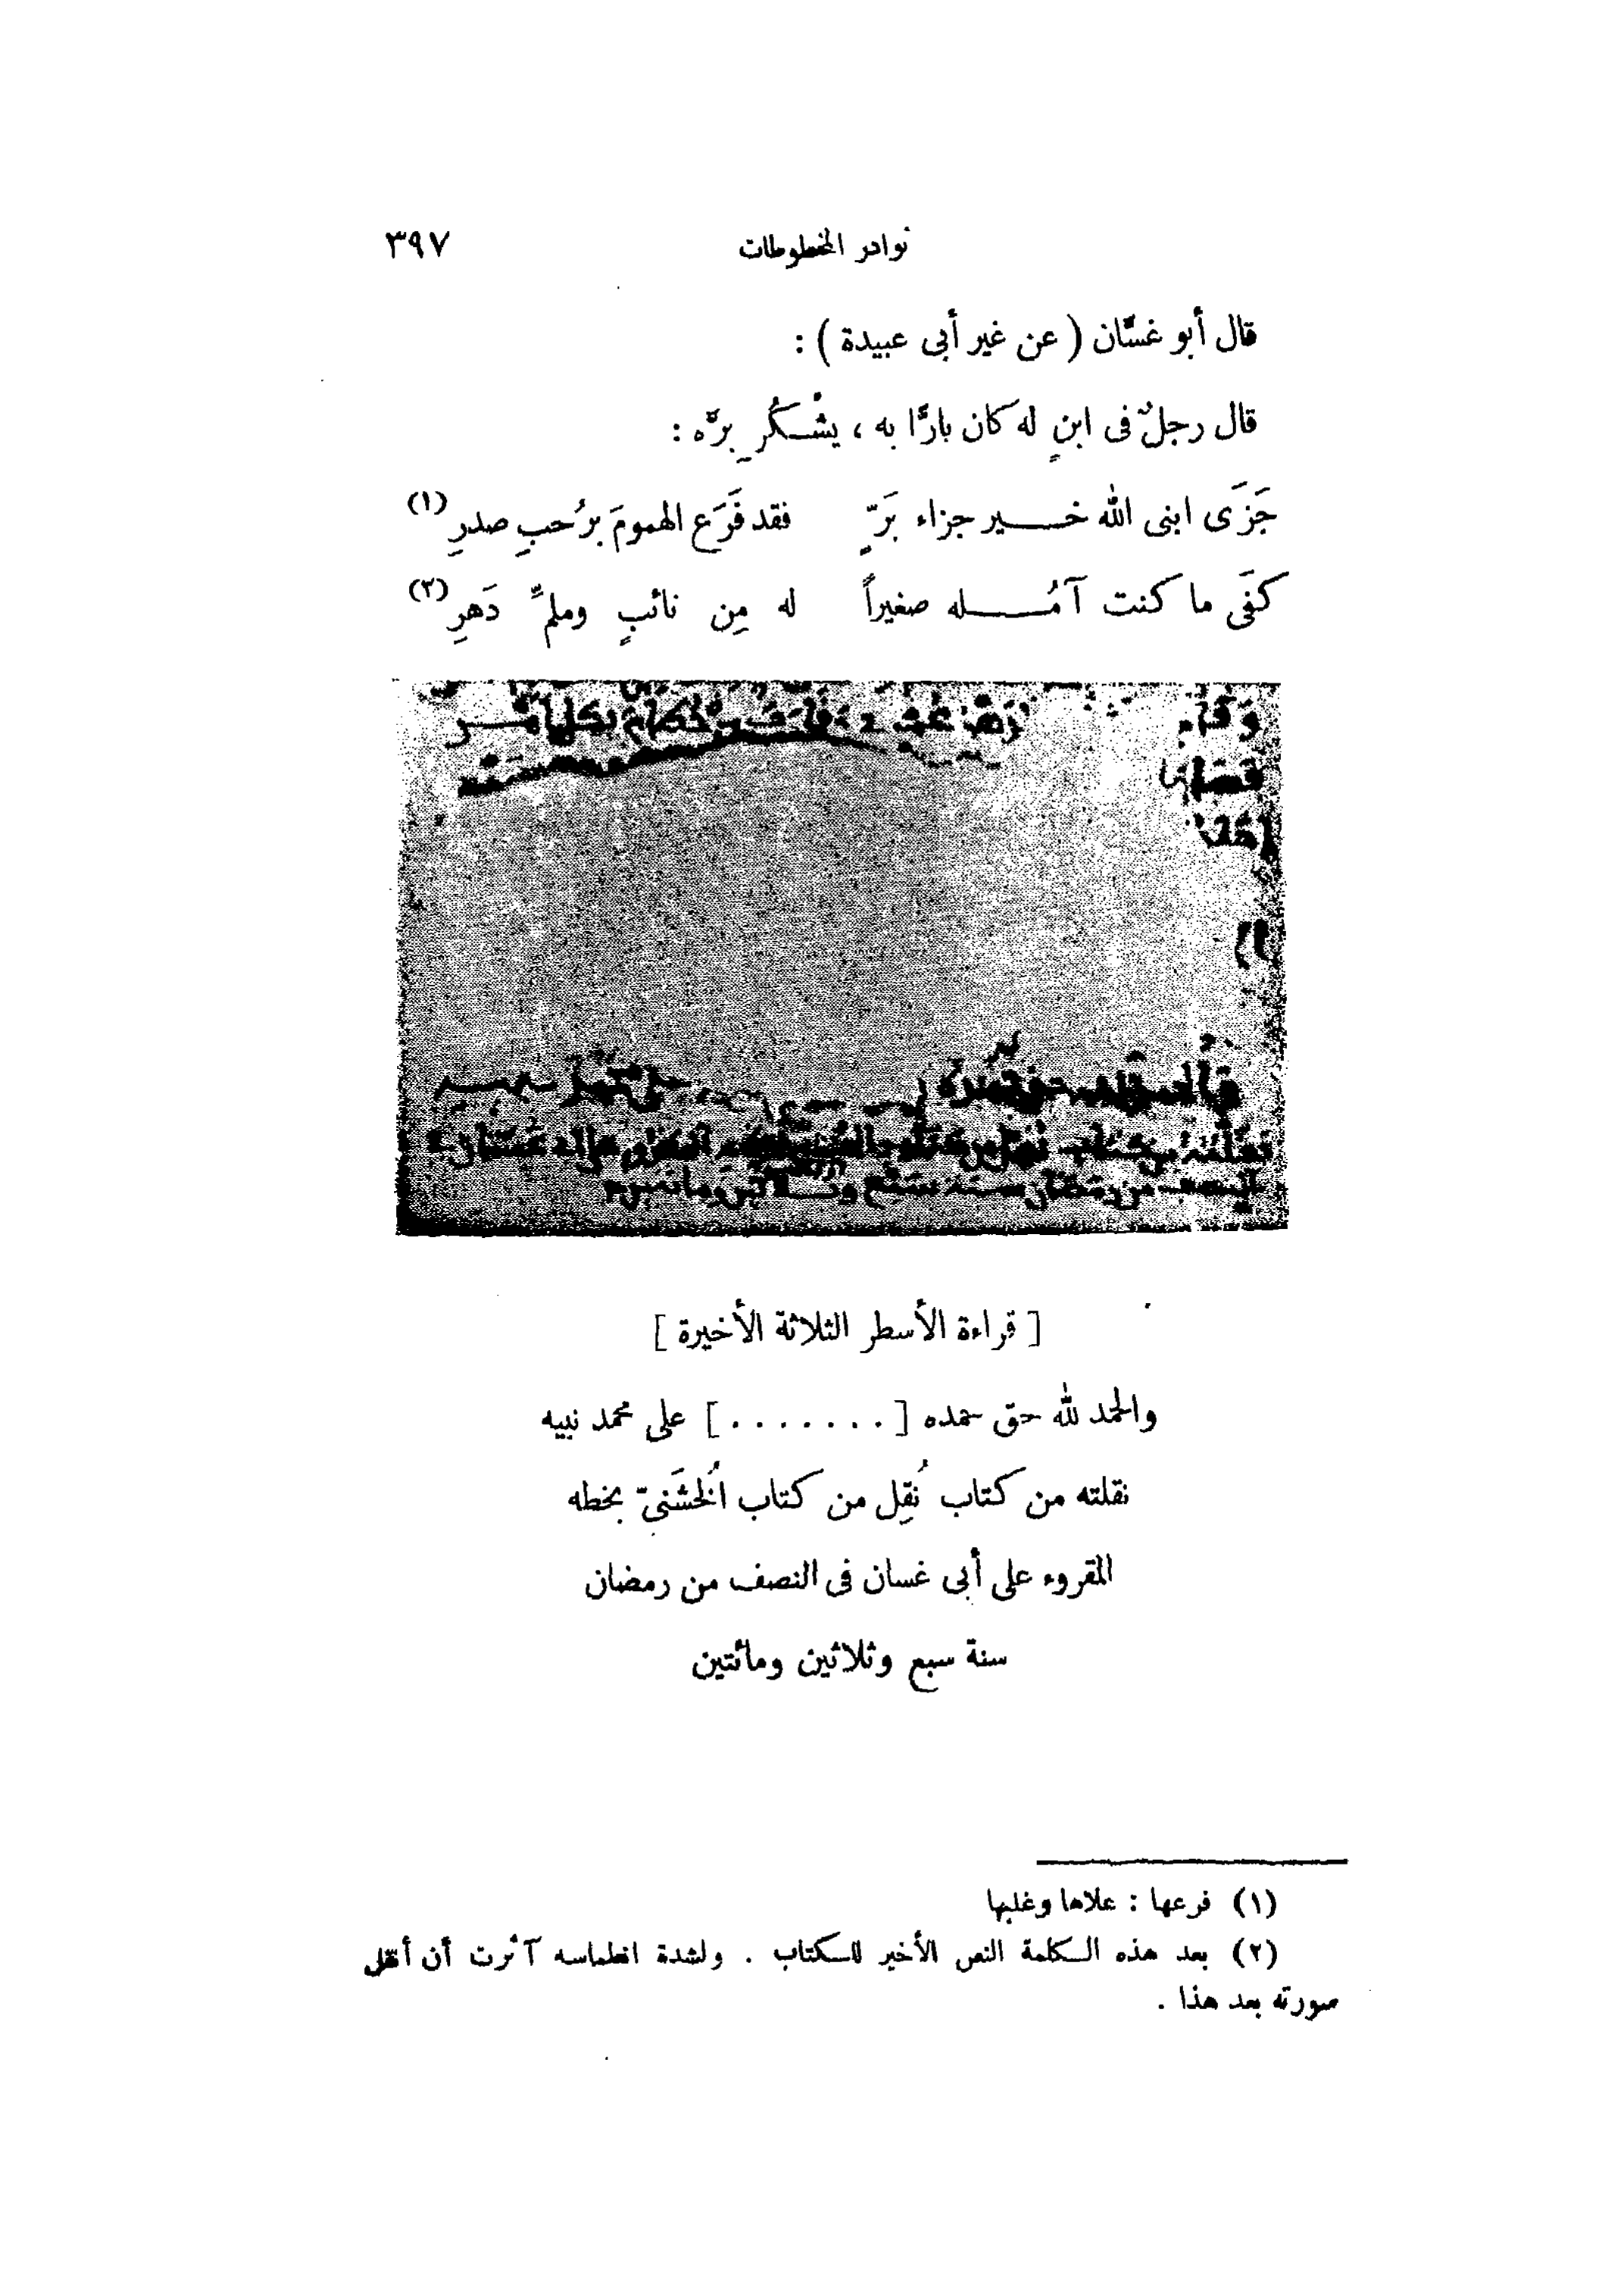 نوادر المخطوطات ٣٩٧
قال أبو غسَّان ( عن غير أبى عبيدة ) :
قال رجلٌ فى ابنٍ له كان بارًّا به ، يشْكُر بِرَّه :
جَزَى ابنى اللهُ خير جزاء بَرٍّ فقد فَرَع الهمومَ بِرُحبِ صدرِ (١)
كفَى ما كنت آمُله صغيراً له مِن نائبٍ وملمِّ دَهرِ (٢)
[ قراءة الأسطر الثلاثة الأخيرة ]
والحمد لله حقّ حمده [ . . . . . . . ] على محمد نبيه
نقلته من كتاب نُقِل من كتاب الُخشَنىّ بخطه
المقروء على أبى غسان فى النصف من رمضان
سنة سبع وثلاثين ومائتين
(١) فرعها : علاها وغلبها
(٢) بعد هذه الكلمة النص الأخير للكتاب . ولشدة انطماسه آثرت أن أنقل
صورته بعد هذا .